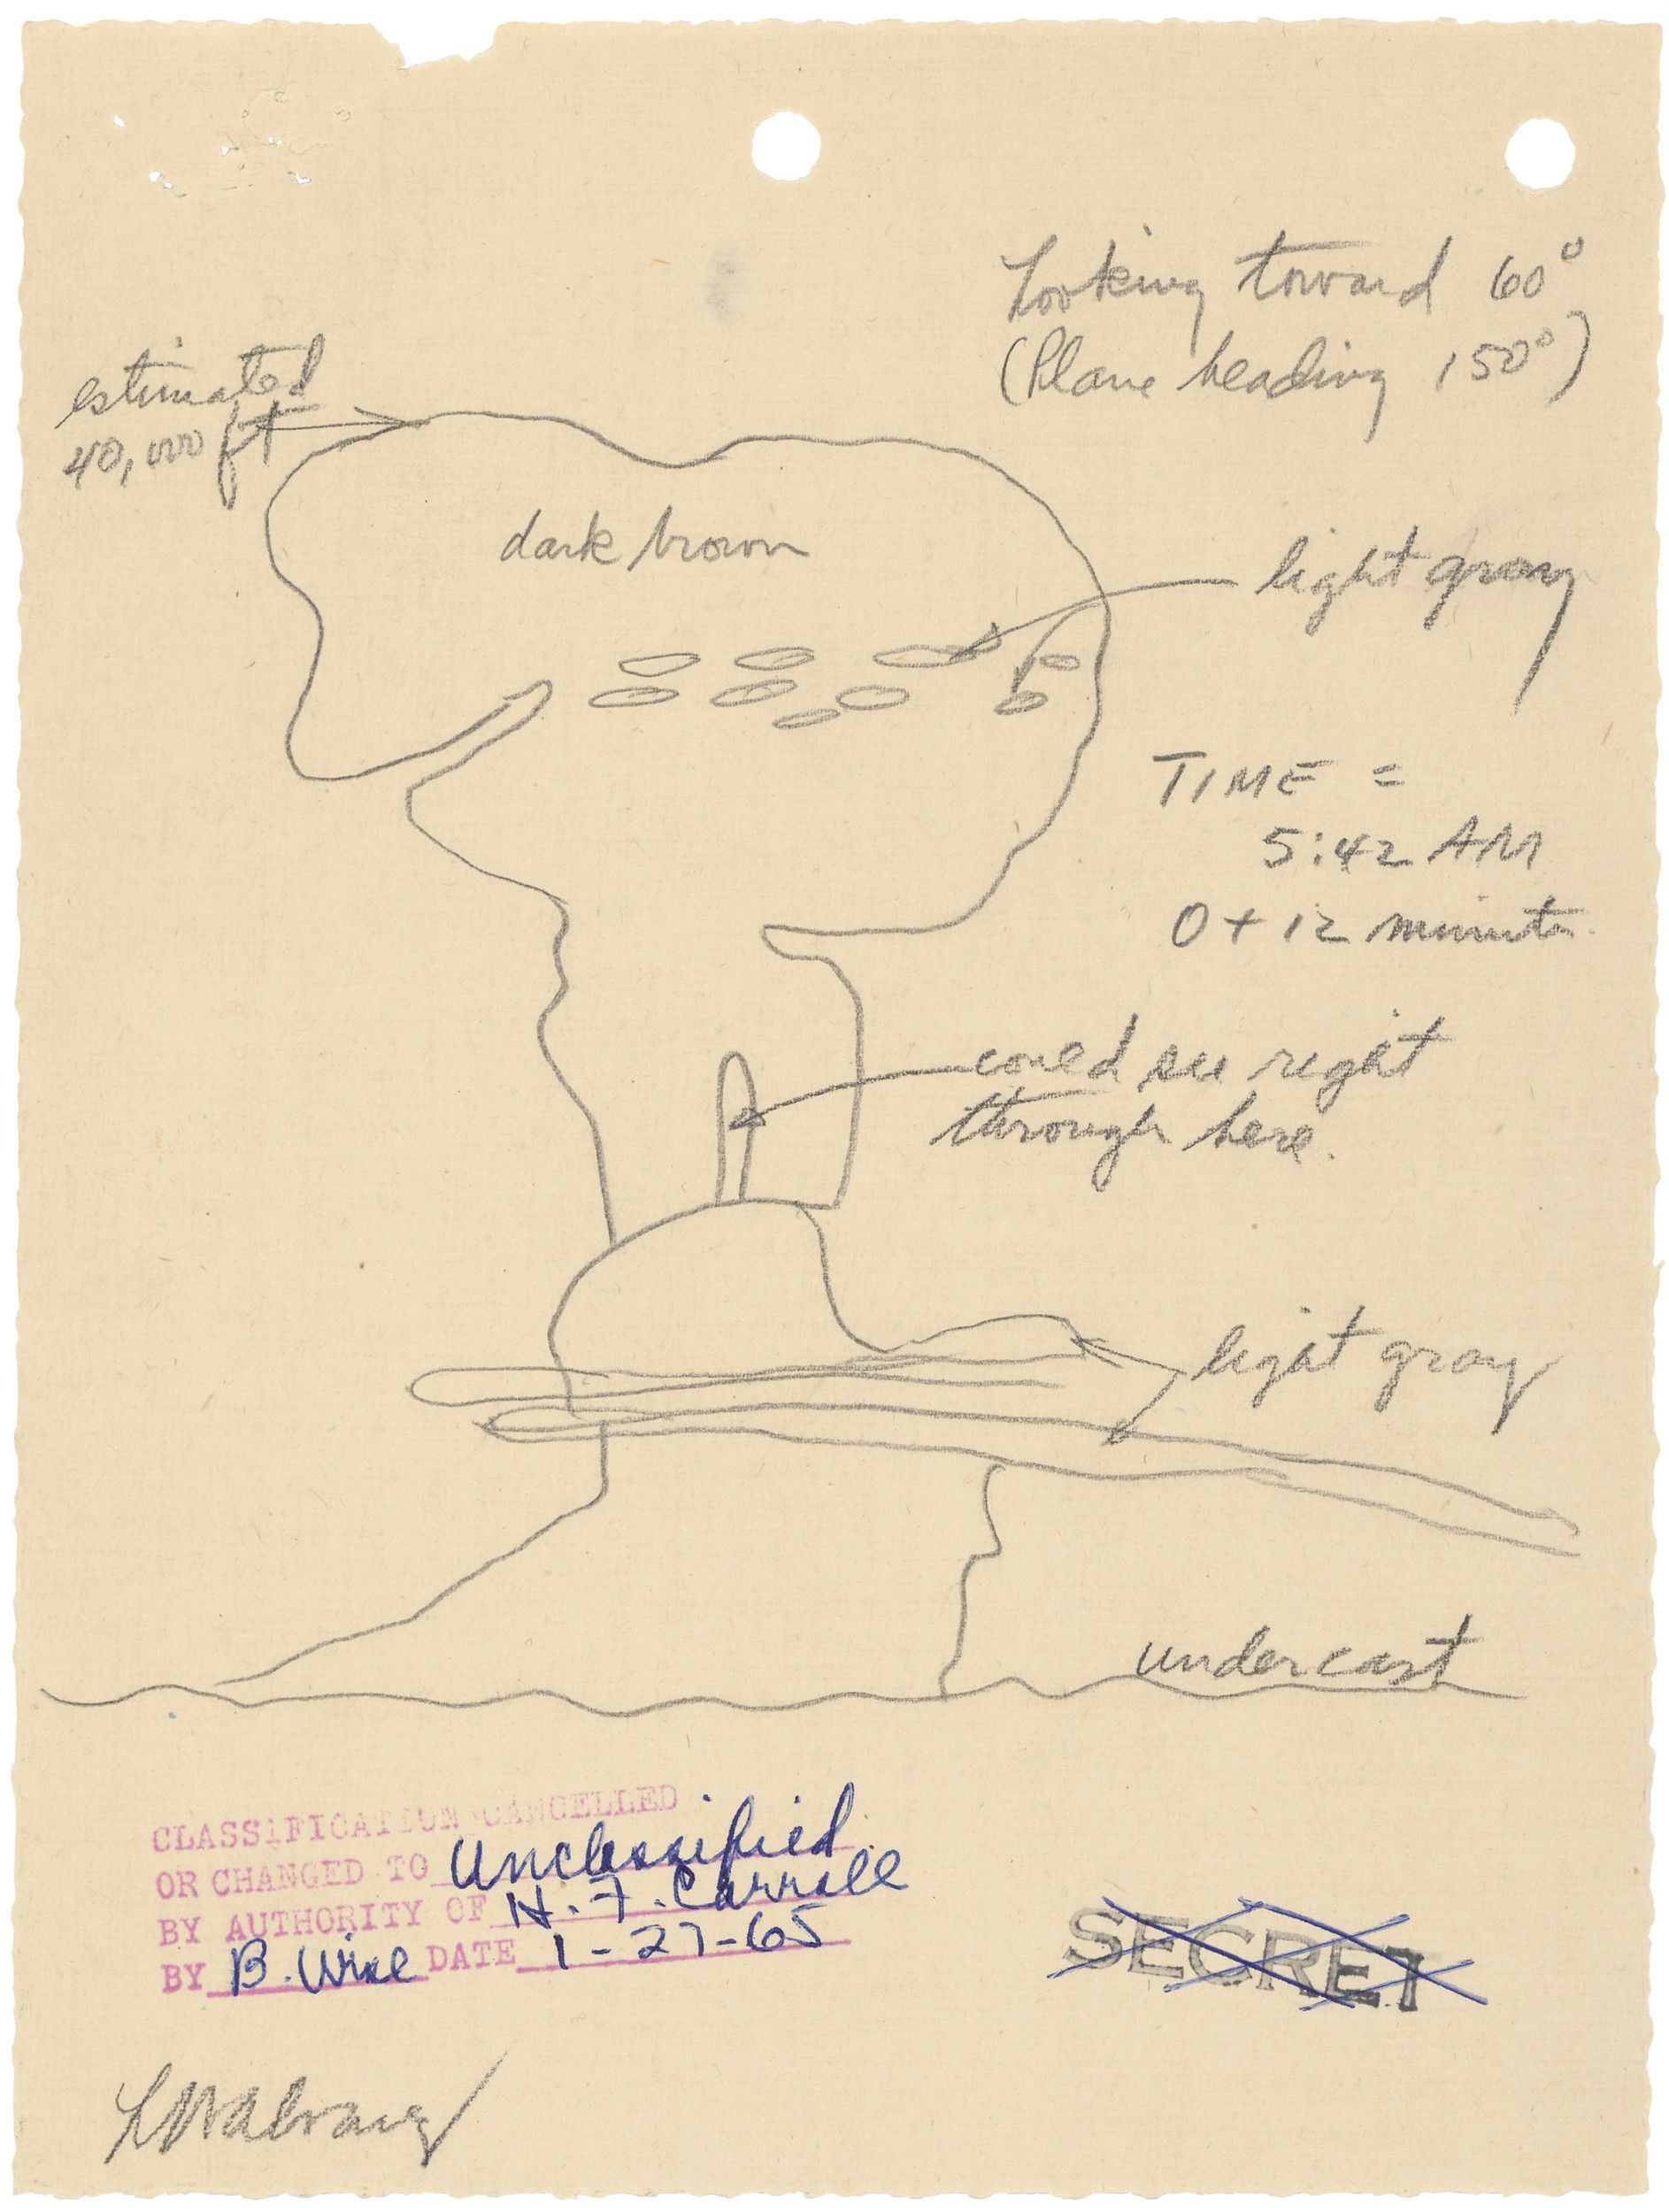 Looking toward 60°
(Plane heading 150°)
estimated
40,000 ft
dark brown
light gray
TIME =
5:42 AM
0 + 12 minutes
could see right
through here.
light gray
undercast
CLASSIFICATION CANCELLED
OR CHANGED TO Unclassified
BY AUTHORITY OF H. F. Carroll
BY B. Wise DATE 1-27-65
SECRET
LWAlvarez